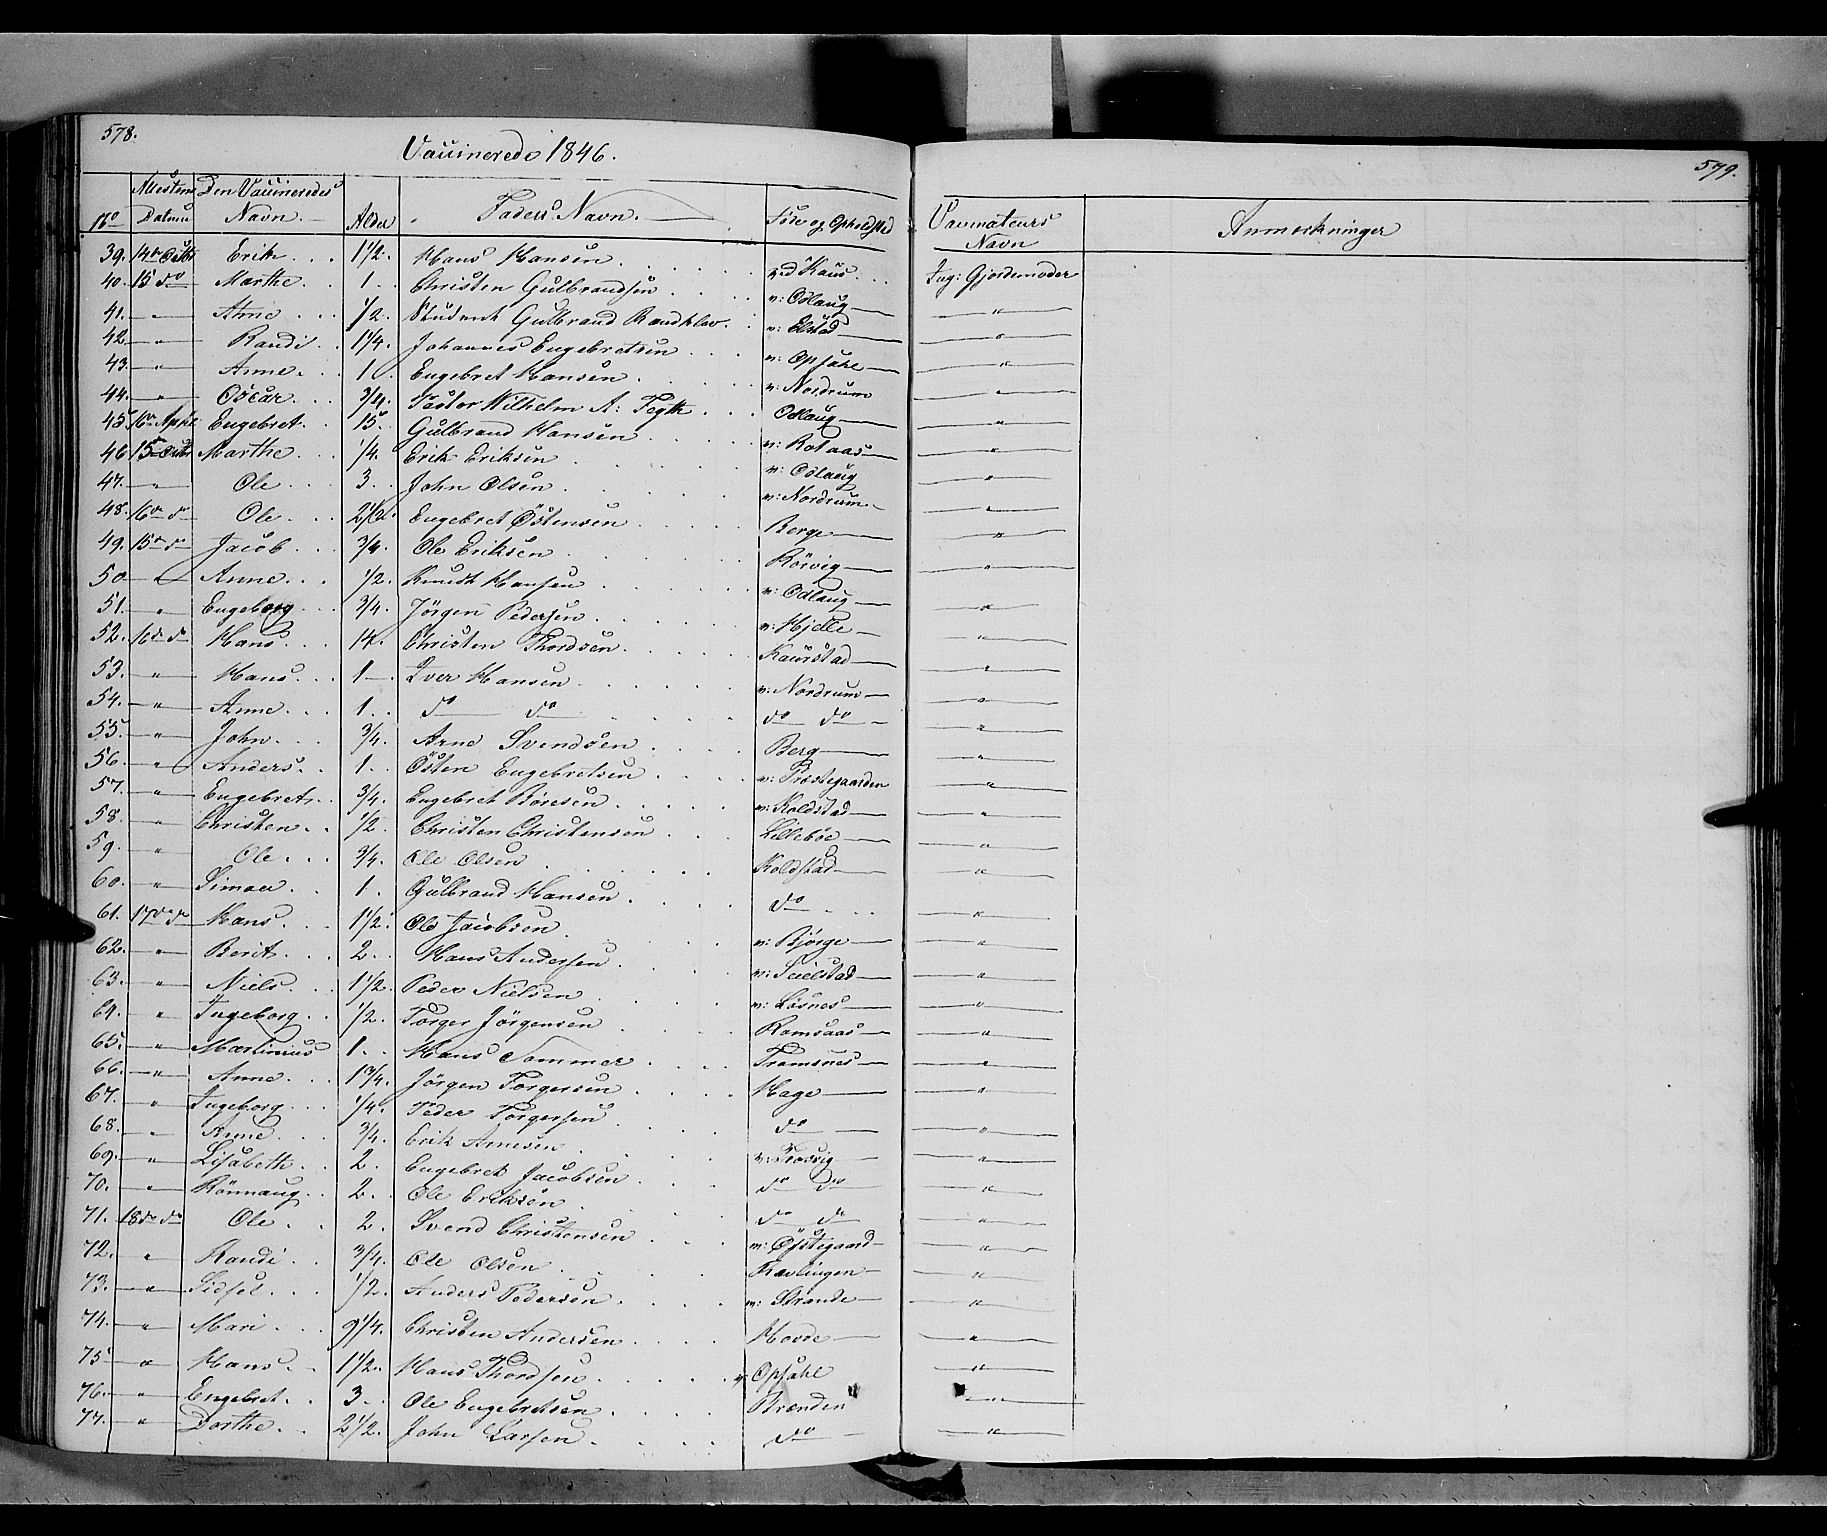 578.
Vaccinerede 1846.
No Attestens Datum Den Vaccineredes Navn. Alder Faders Navn. Føde og Opholdsted
39. 14de Octbr Erik 1 1/2. Hans Hansen ved Kaus
40. 15 do Marthe 1. Christen Gulbrandsen v: Odlaug
41. " Anne 1/2. Student Gulbrand Randklev v: Elstad
42. " Randi 1 1/4. Johannes Engebretsen v: Opsahl
43. " Anne 1. Engebret Hansen v: Nordrum
44. " Oscar 3/4. Pastor Wilhelm A: Odlaug
45. 16de April Engebret 15. Gulbrand Hansen v: Rolaas
46. 15de Octbr Marthe 1/4. Erik Eriksen v: Odlaug
47. " Ole 3. John Olsen v: Nordrum
48. 16de do Ole 2 1/2. Engebret Östensen Berge
49. 15de do Jacob 3/4. Ole Eriksen Rörvig
50. " Anne 1/2. Knudt Hansen v: Odlaug
51. " Engeborg 3/4. Jörgen Pedersen v: Hjelle
52. 16de do Hans 14. Christen Thordsen Kaurstad
53. " Hans 1. Iver Hansen v: Nordrum
54. " Anne 1. do do do do
55. " John 3/4. Arne Svendsen Berg
56. " Anders 1. Östen Engebretsen v: Præstegaarden
57. " Engebret 3/4. Engebret Böresen v: Koldstad
58. " Christen 1/2. Christen Christensen Lilleböe
59. " Ole 3/4. Ole Olsen Koldstad
60. " Simen 1. Gulbrand Hansen do
61. 17de do Hans 1 1/2. Ole Jacobsen v: Bjørge
62. " Berit 2. Hans Andersen v: Seielstad
63. " Niels 1 1/2. Peder Nielsen v: Løsnes
64. " Ingeborg 1/2. Torger Jörgensen Ramsaas
65. " Martinius 1. Hans Sommer Tromsnes
66. " Anne 1 3/4. Jörgen Torgersen Hage
67. " Ingeborg 1/4. Peder Torgersen do
68. " Anne 3/4. Erik Arnesen
69. " Lisabeth 2. Engebret Jacobsen do do
70. " Rönnaug 2. Ole Eriksen do do
71. 18de do Ole 2. Svend Christensen v: Öjstegaard
72. " Randi 3/4. Ole Olsen
73. " Sidsel 1/2. Anders Pedersen v: Strande
74. " Mari 9 1/4. Christen Andersen Hovde
75. " Hans 1 1/2. Hans Thordsen v: Opsahl
76. " Engebret 3. Ole Engebretsen Brænden
77. " Dorthe 2 1/2. John Larsen do
579.
Vaccinateurs Navn Anmærkninger
Jug: Gjordemoder